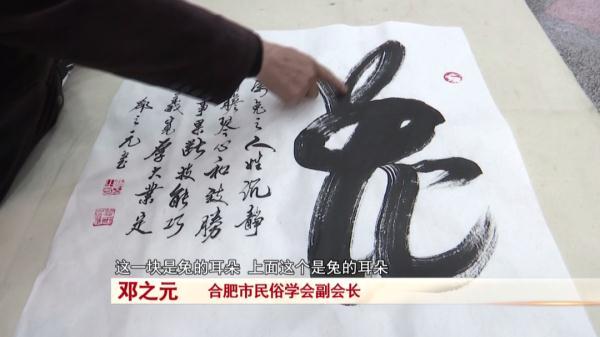 兔
兔之人性沉静
琴心和致勝
事果斷技能巧
厚大業定
邓之元書
这一块是兔的耳朵 上面这个是兔的耳朵
邓之元 合肥市民俗学会副会长